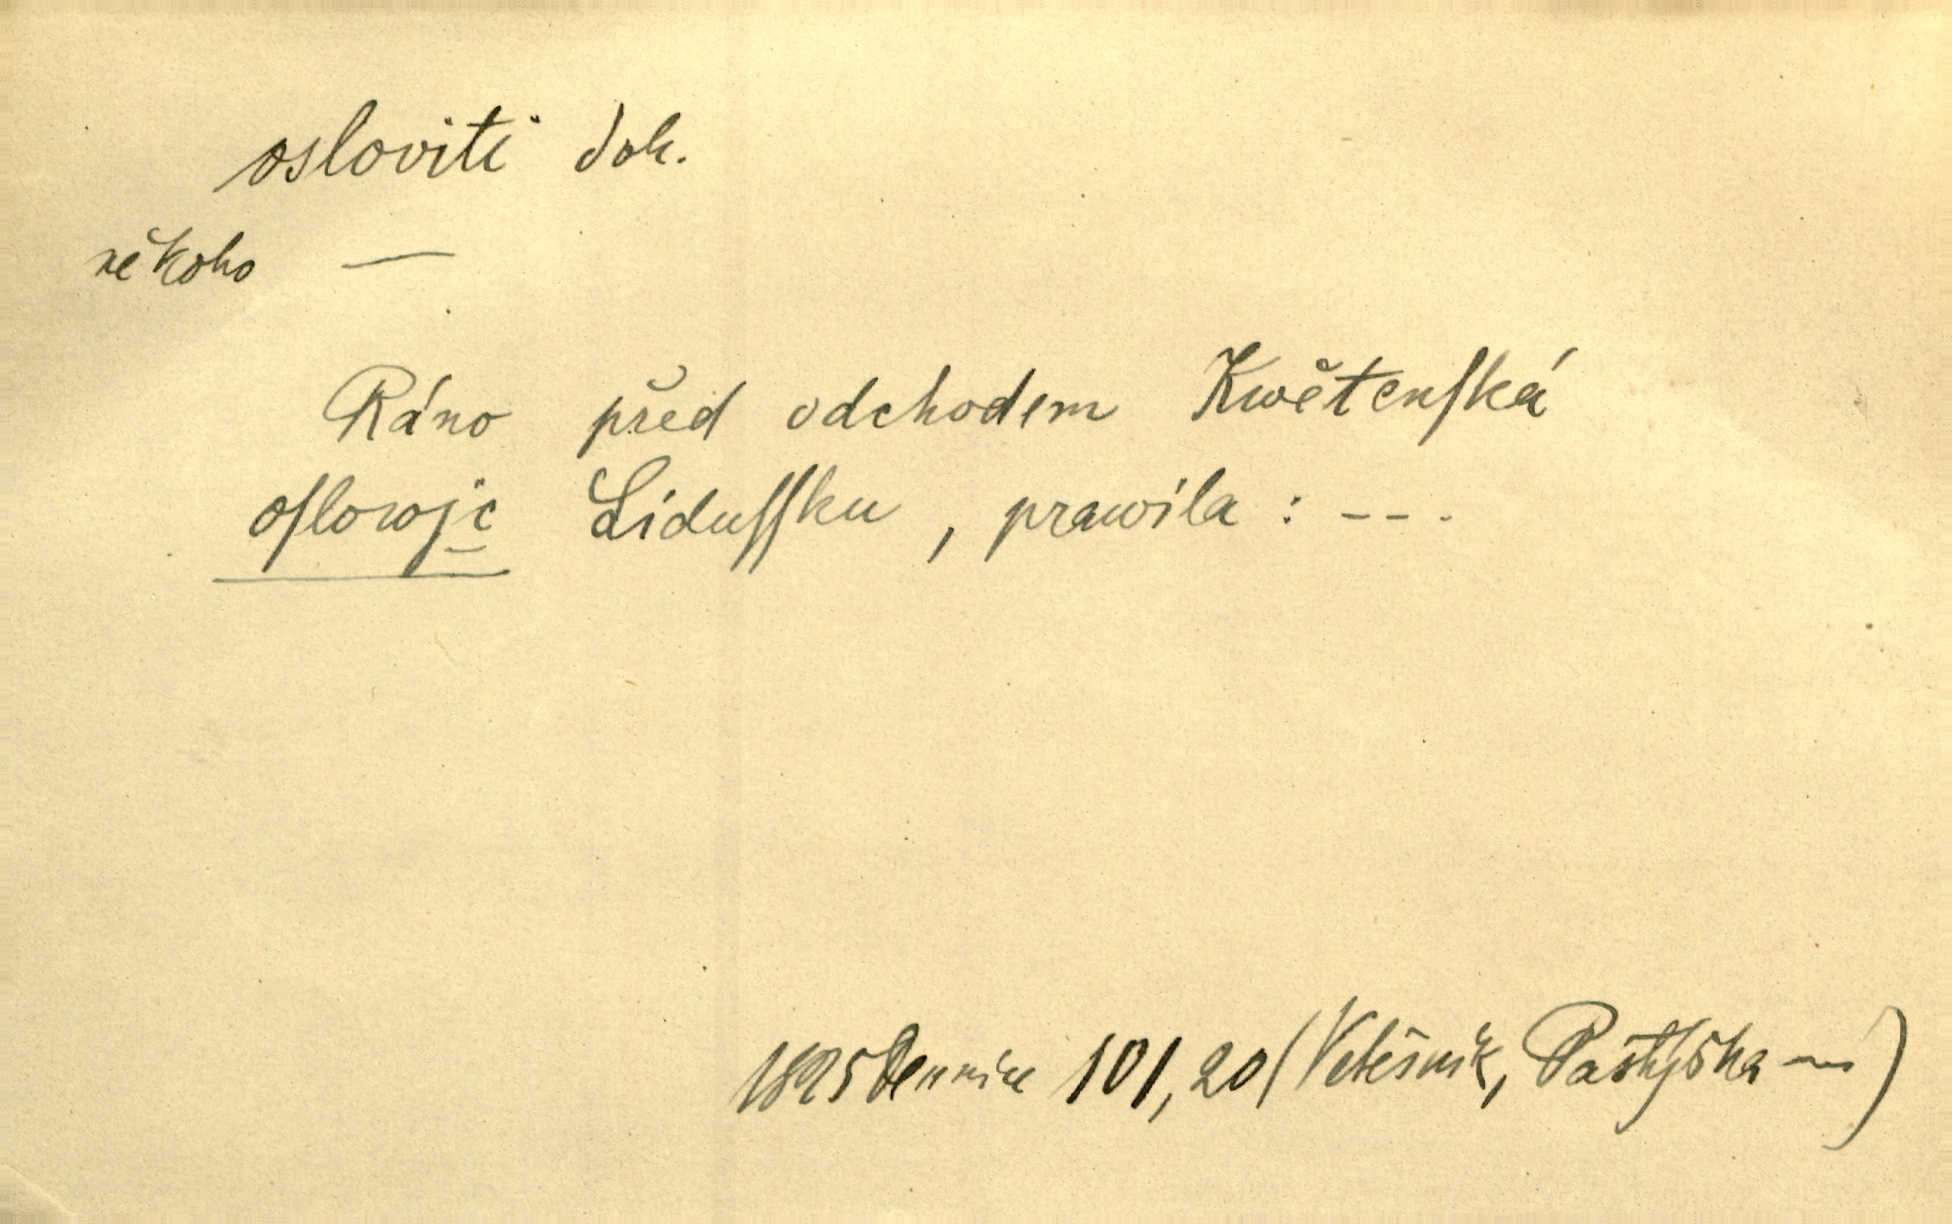 osloviti dok.
někoho —
Ráno před odchodem Kwětenſká
oſlowoje Liduſſku, prawila : - - -
1825 Dennice 101, 20 (Vetešník, Pastýřka —)